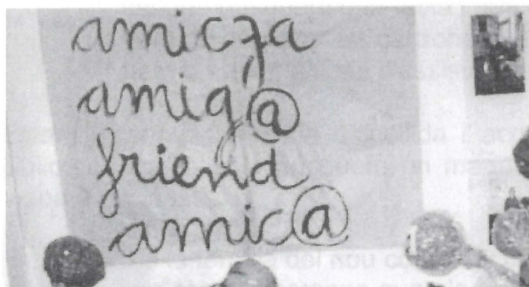 amicza
amig@
friend
amic@